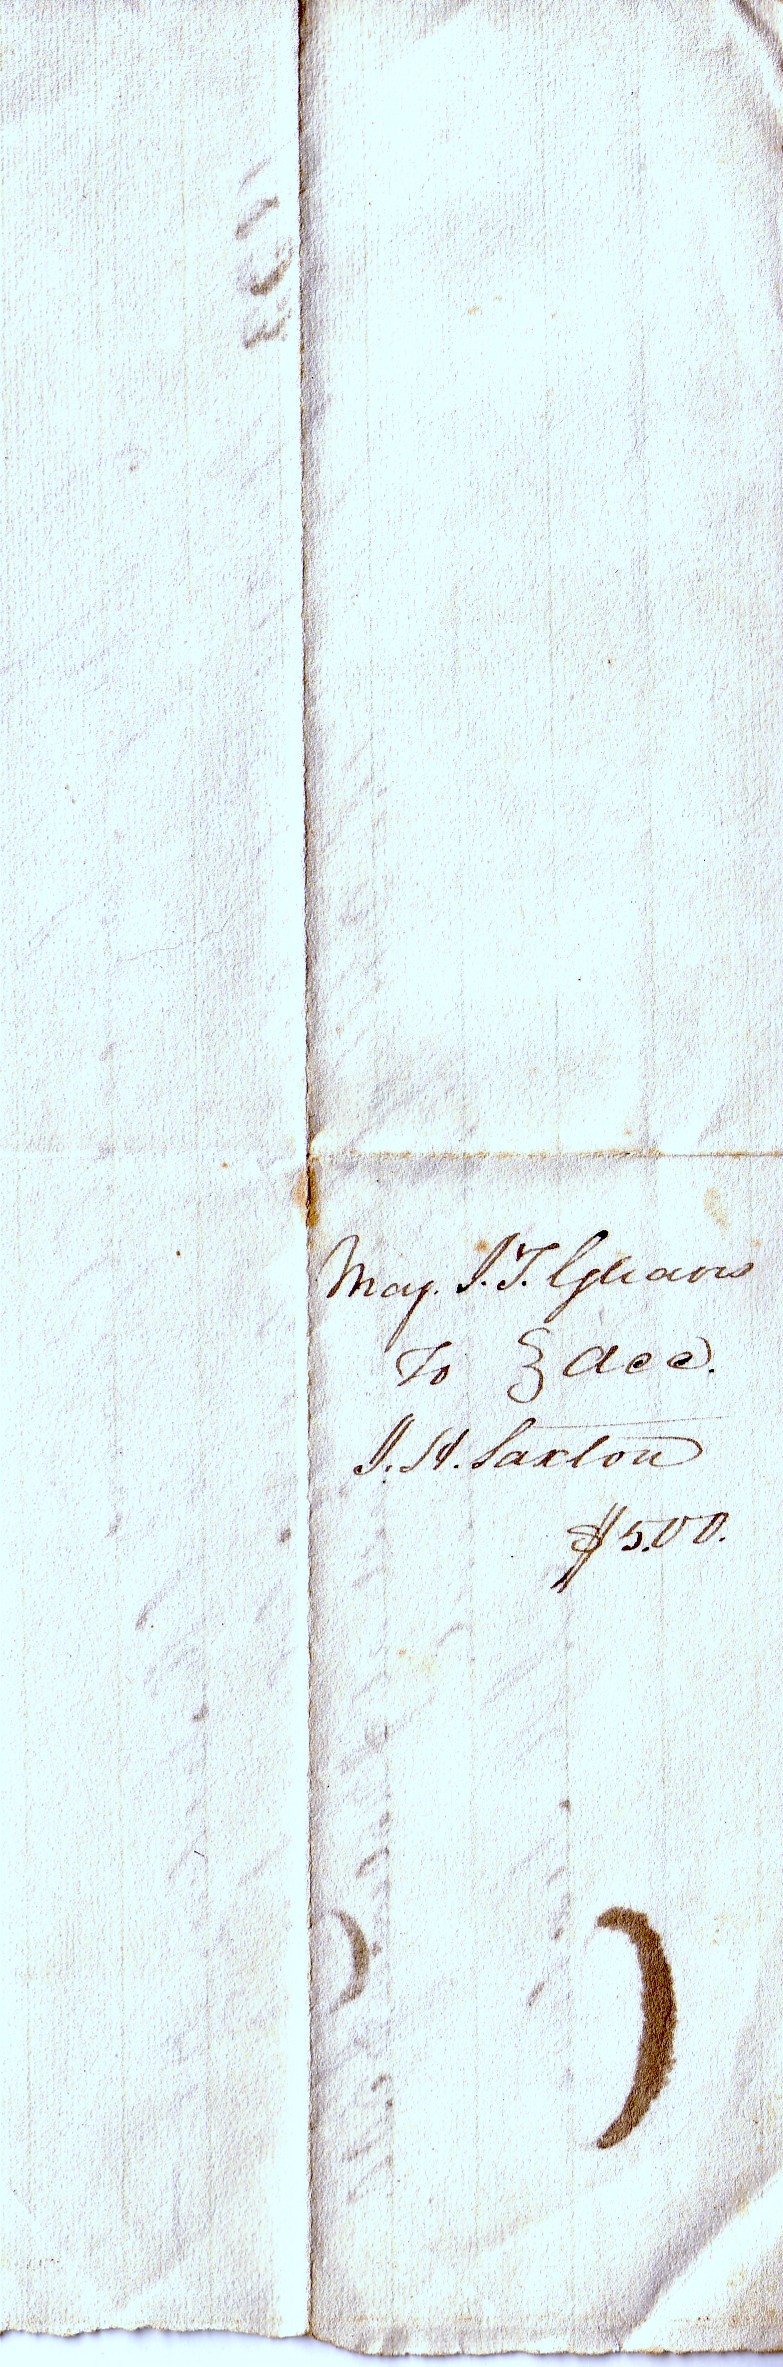 Maj. J. T. Gleaves
To } Acc.
J. H. Saxton
$5.00.